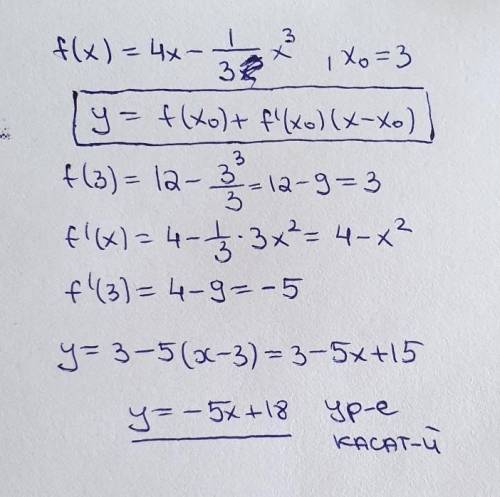 f(x) = 4x - 1/3 x³ , x₀ = 3
y = f(x₀) + f'(x₀)(x-x₀)
f(3) = 12 - 3³/3 = 12 - 9 = 3
f'(x) = 4 - 1/3 · 3x² = 4 - x²
f'(3) = 4 - 9 = -5
y = 3 - 5(x-3) = 3 - 5x + 15
y = -5x + 18 ур-е
касат-й